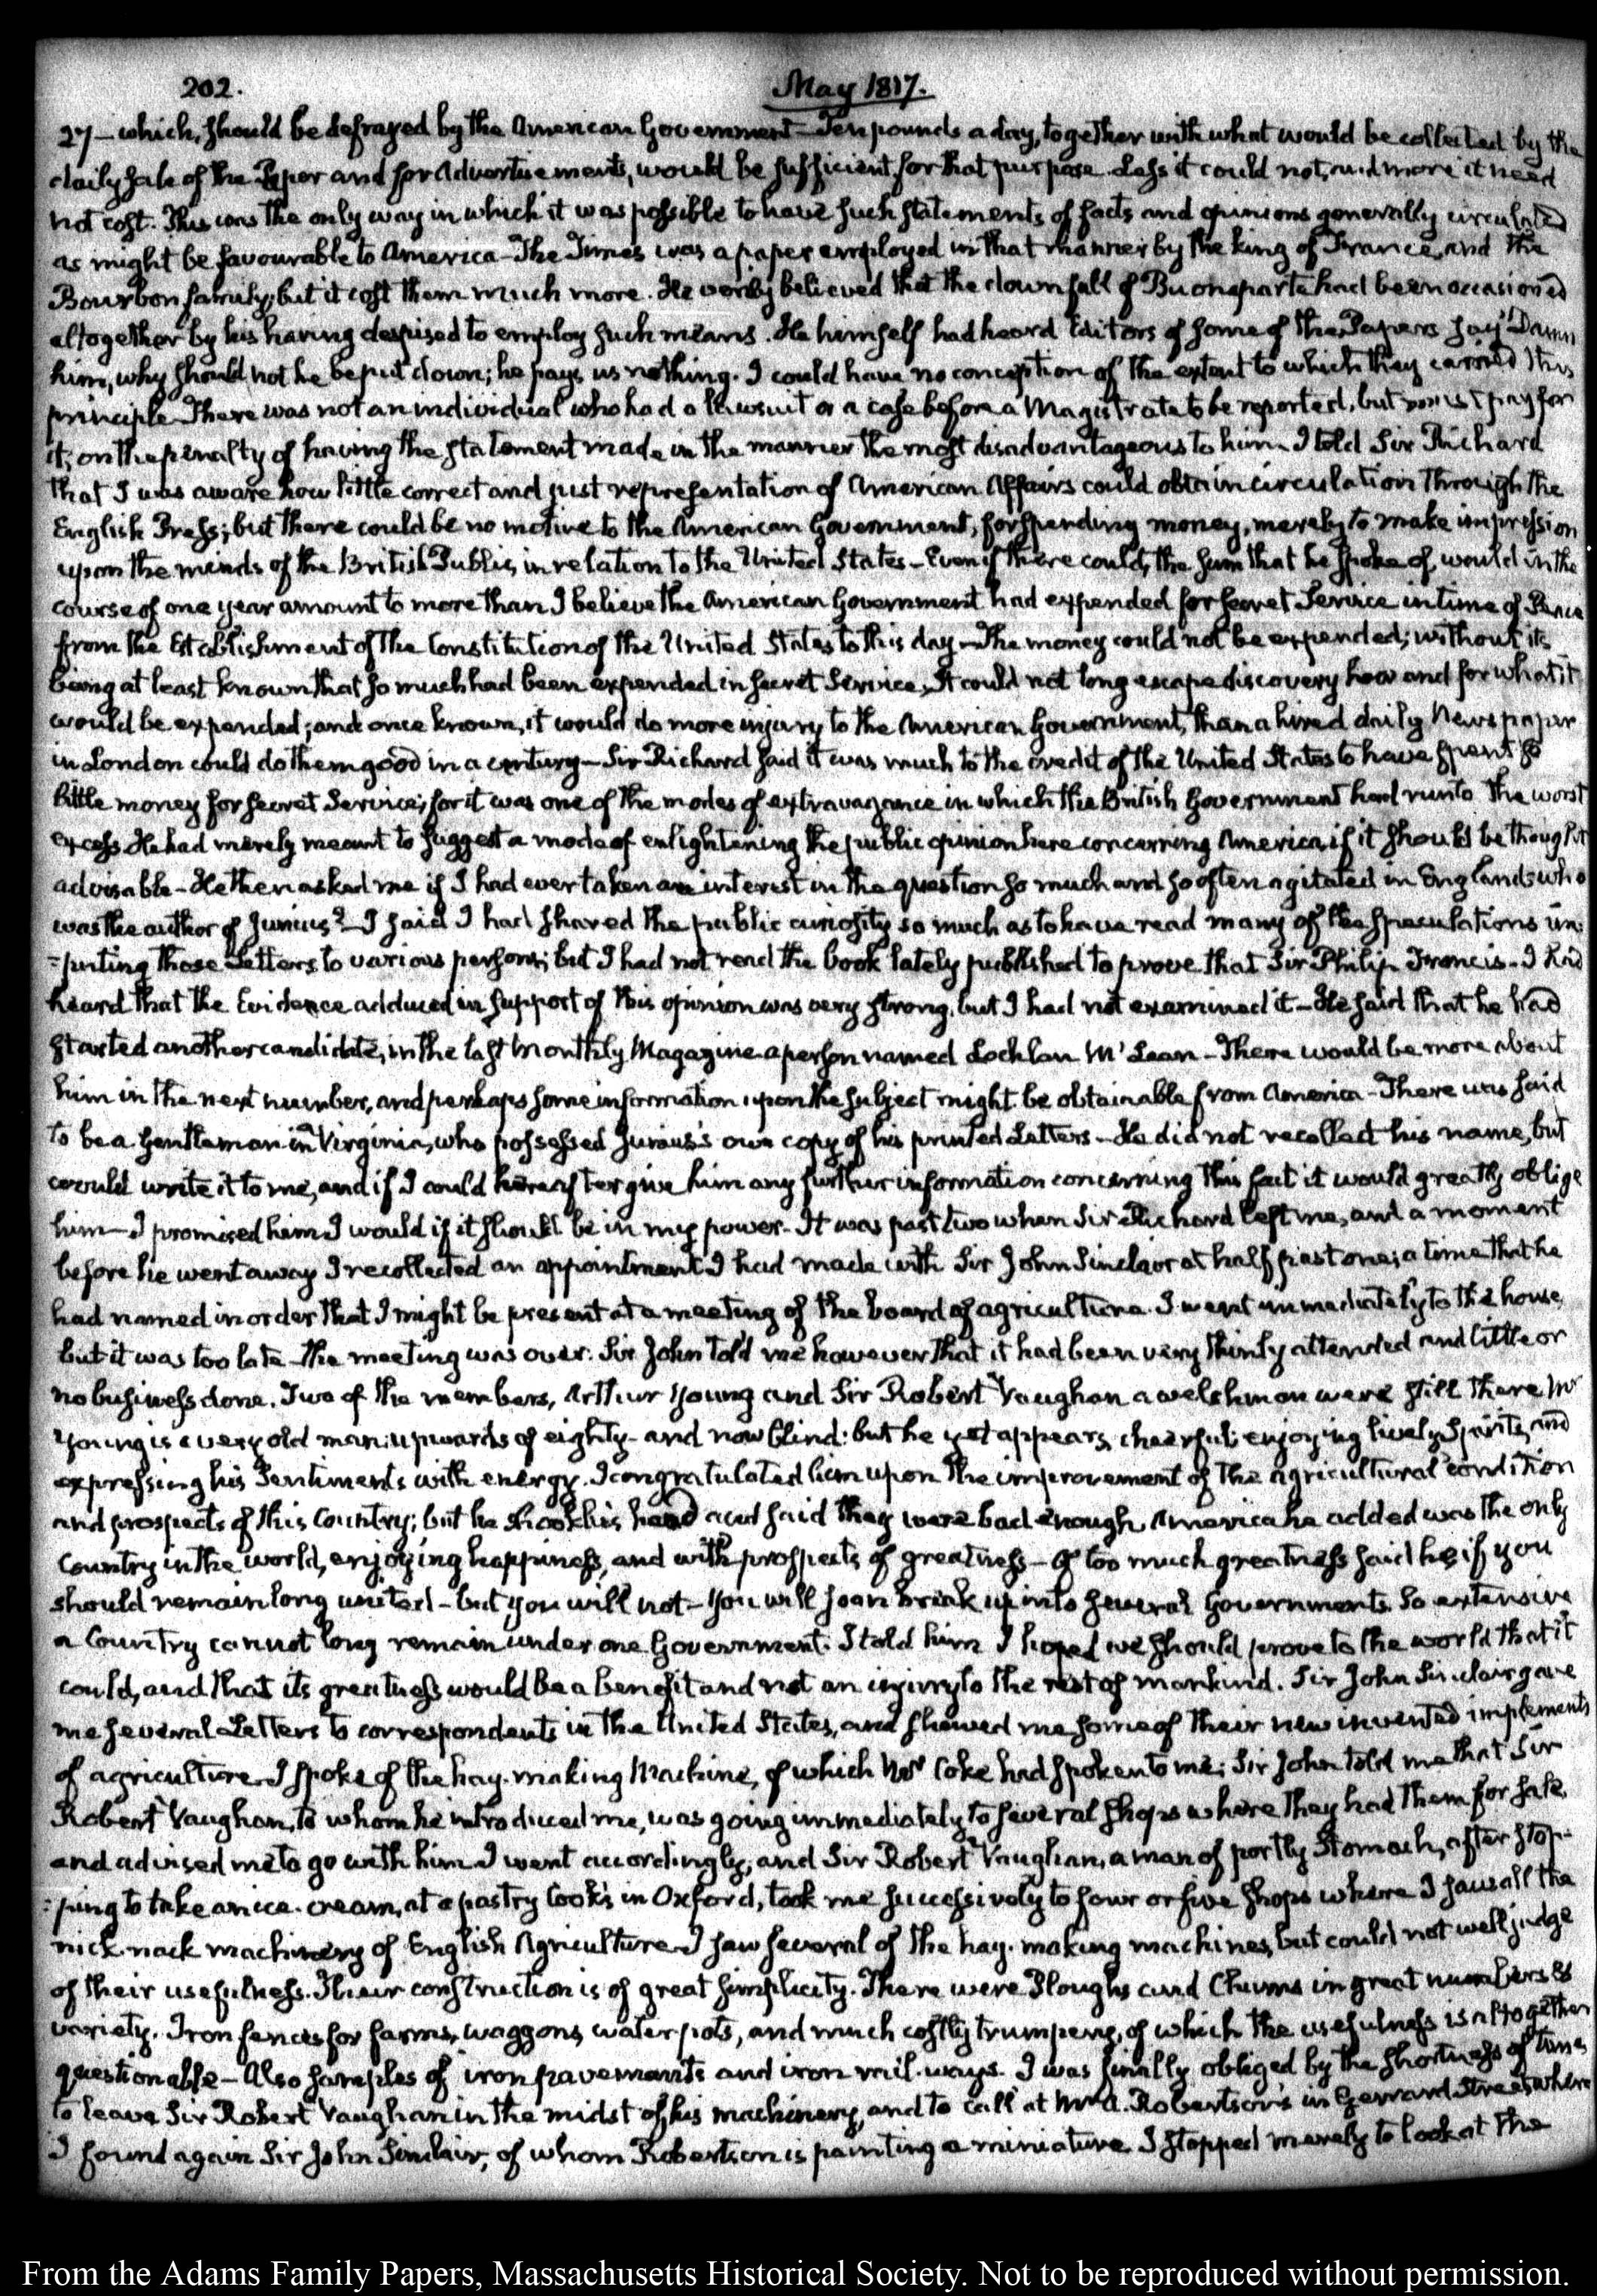 202.
May 1817.
27 – which, should be defrayed by the American Government – Ten pounds a day, together with what would be collected by the
daily sale of the Paper and for Advertisements, would be sufficient for that purpose. Less it could not, and more it need
not cost. This was the only way in which it was possible to have such statements of facts and opinions generally circulated
as might be favourable to America – The Times was a paper employed in that manner by the king of France, and the
Bourbon family; but it cost them much more. He verily believed that the downfall of Buonaparte had been occasioned
altogether by his having despised to employ such means. He himself had heard Editors of some of the Papers say "Damn
him, why should not he be put down; he pays us nothing. I could have no conception of the extent to which they carried this
principle. There was not an individual who had a lawsuit or a case before a Magistrate to be reported, but must pay for
it; on the penalty of having the statement made in the manner the most disadvantageous to him – I told Sir Richard
that I was aware how little correct and just representation of American Affairs could obtain circulation through the
English Press; but there could be no motive to the American Government, for spending money, merely to make impression
upon the minds of the British Public, in relation to the United States – Even if there could, the sum that he spoke of, would in the
course of one year amount to more than I believe the American Government had expended for Secret Service in time of Peace
from the Establishment of the Constitution of the United States to this day – The money could not be expended; without its
being at least known that so much had been expended in Secret Service. It could not long escape discovery how and for what it
would be expended; and once known, it would do more injury to the American Government, than a hired daily Newspaper
in London could do them good in a century – Sir Richard said it was much to the credit of the United States to have spent so
little money for Secret Service; for it was one of the modes of extravagance in which the British Government had run to the worst
excess. He had merely meant to suggest a mode of enlightening the public opinion here concerning America, if it should be thought
advisable – He then asked me if I had ever taken an interest in the question so much and so often agitated in England; who
was the author of Junius? – I said I had shared the public curiosity so much as to have read many of the speculations im:
:puting those Letters to various persons; but I had not read the book lately published to prove that Sir Philip Francis – I had
heard that the Evidence adduced in support of this opinion was very strong, but I had not examined it – He said that he had
started another candidate, in the last Monthly Magazine – a person named Lochlan McLean – There would be more about
him in the next number, and perhaps some information upon the subject might be obtainable from America – There was said
to be a Gentleman in Virginia, who possessed Junius's own copy of his printed Letters – He did not recollect his name, but
would write it to me, and if I could hereafter give him any further information concerning this fact it would greatly oblige
him – I promised him I would if it should be in my power – It was past two when Sir Richard left me, and a moment
before he went away I recollected an appointment I had made with Sir John Sinclair at half past one; a time that he
had named in order that I might be present at a meeting of the board of agriculture. I went immediately to the house,
but it was too late – the meeting was over. Sir John told me however that it had been very thinly attended and little or
no business done. Two of the members, Arthur Young and Sir Robert Vaughan a welshman were still there Mr
Young is a very old man: upwards of eighty – and now blind: but he yet appears cheerful; enjoying lively Spirits, and
expressing his Sentiments with energy. I congratulated him upon the improvement of the agricultural condition
and prospects of this Country; but he shook his head and said they were bad enough. America he added was the only
Country in the world, enjoying happiness, and with prospects of greatness – Of too much greatness said he, if you
should remain long united – but you will not – You will soon break up into several Governments. So extensive
a Country cannot long remain under one Government. I told him I hoped we should prove to the world that it
could, and that its greatness would be a benefit and not an injury to the rest of mankind. Sir John Sinclair gave
me several Letters to correspondents in the United States, and showed me some of their new invented implements
of agriculture. I spoke of the hay-making Machine, of which Mr Coke had spoken to me; Sir John told me that Sir
Robert Vaughan, to whom he introduced me, was going immediately to several shops where they had them for sale,
and advised me to go with him. I went accordingly, and Sir Robert Vaughan, a man of portly Stomach, after stop-
:ping to take an ice-cream, at a pastry Cook's in Oxford, took me successively to four or five shops where I saw all the
nick-nack machinery of English Agriculture. I saw several of the hay-making machines, but could not well judge
of their usefulness. Their construction is of great simplicity. There were Ploughs and Churns in great numbers &
variety. Iron fences for farms, waggons, water pots, and much costly trumpery, of which the usefulness is altogether
questionable – Also samples of iron pavements and iron rail-ways. I was finally obliged by the shortness of time
to leave Sir Robert Vaughan in the midst of his machinery, and to call at Mr A. Robertson's in Gerrard Street where
I found again Sir John Sinclair, of whom Robertson is painting a miniature. I stopped merely to look at the
From the Adams Family Papers, Massachusetts Historical Society. Not to be reproduced without permission.